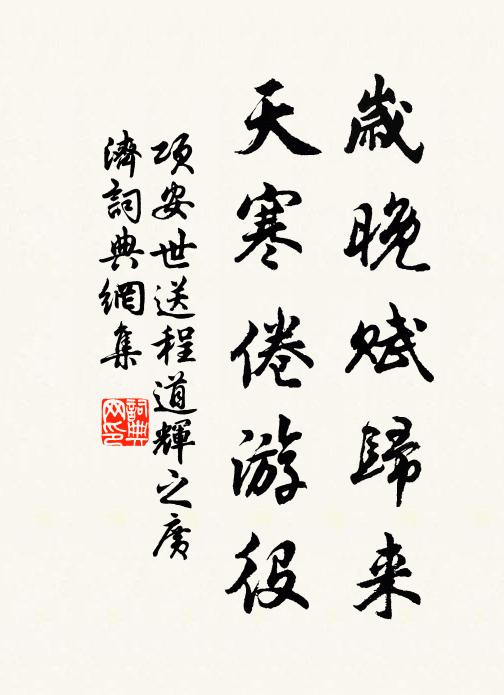 歲晚賦歸来
天寒倦游役
項安世送程道輝之廣
濟詞典網集
詞典
网印